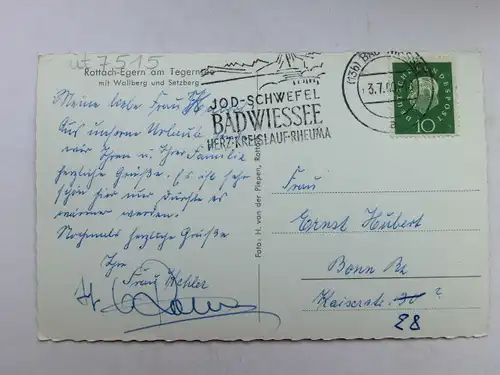 7515
Rottach-Egern am Tegernsee
mit Wallberg und Setzberg
Meine liebe Frau
Aus unserem Urlaub
wir Ihnen u. Ihrer Familie
herzliche Grüße. Es ist sehr
schön hier nur dürfte es
wärmer werden.
Nochmals herzliche Grüße
Ihre
Frau Kehler
JOD-SCHWEFEL
BAD WIESSEE
HERZ·KREISLAUF·RHEUMA
(13b) BAD
3.7.60
DEUTSCHE BUNDESPOST
10
Foto: H. van der Piepen, Rottach
Frau
Ernst Hubert
Bonn Rz
Kaiserstr. 30 ?
28